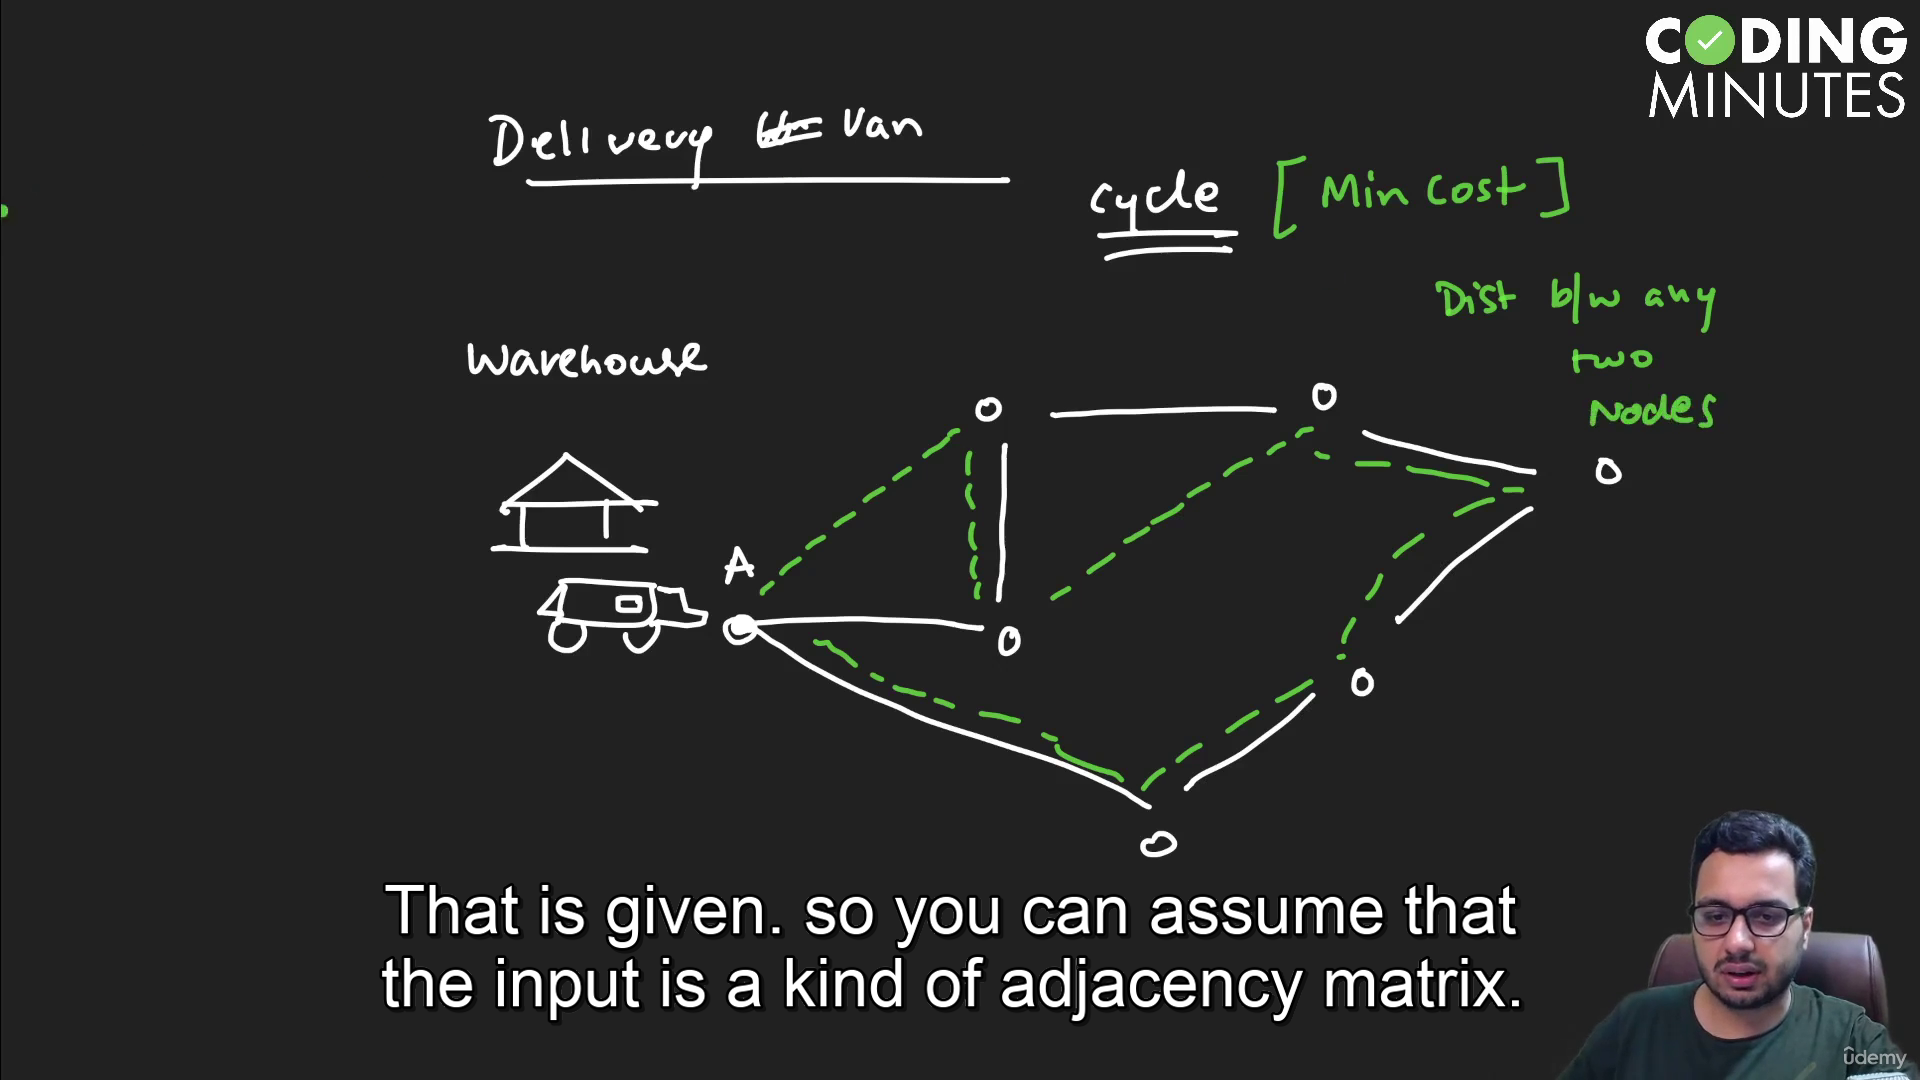 CODING
MINUTES
Delivery Van
cycle [Min Cost]
Dist b/w any
two
Nodes
Warehouse
A
That is given. so you can assume that
the input is a kind of adjacency matrix.
ûdemy